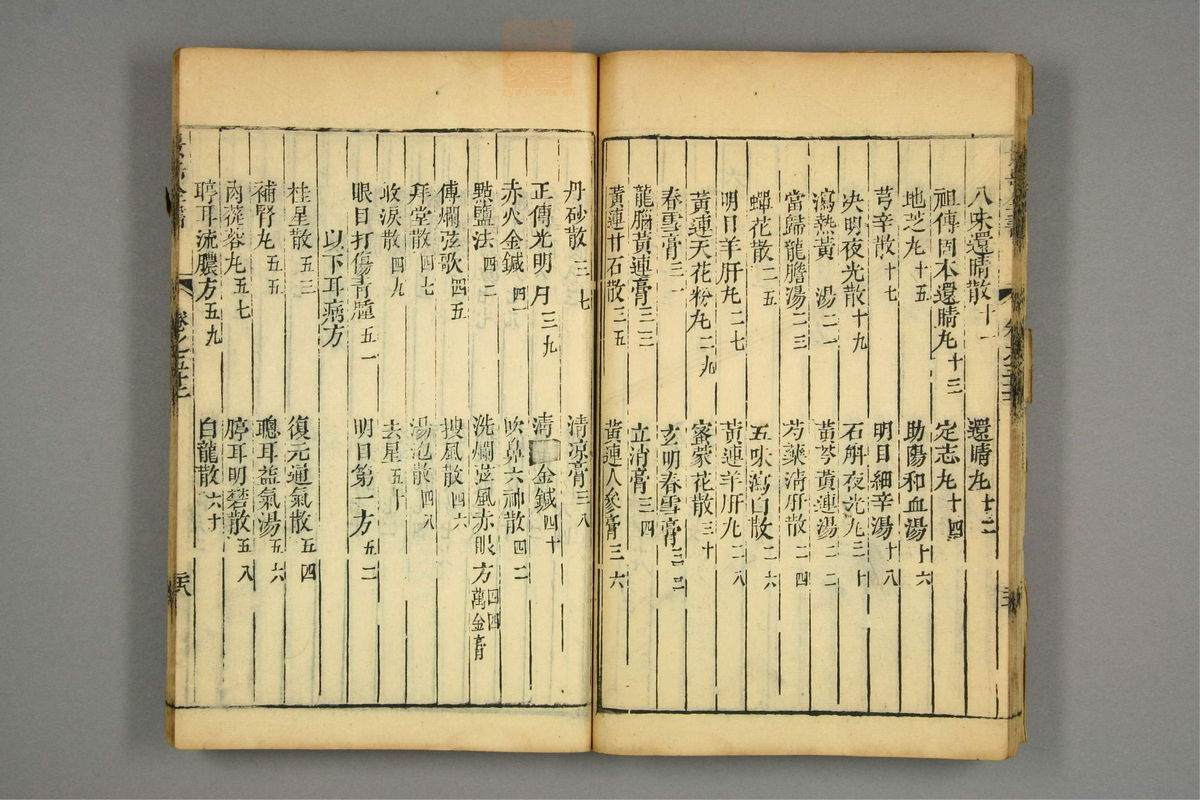 八味還睛散十一 還睛丸十二
祖傳固本還睛丸十三 定志丸十四
地芝丸十五 助陽和血湯十六
芎辛散十七 明目細辛湯十八
决明夜光散十九 石斛夜光丸二十
瀉熱黃 湯二一 黃芩黃連湯二二
當歸龍膽湯二三 芍藥清肝散二四
蟬花散二五 五味瀉白散二六
明目羊肝丸二七 黃連羊肝丸二八
黃連天花粉丸二九 蜜蒙花散三十
春雪膏三一 玄明春雪膏三二
龍腦黃連膏三三 立消膏三四
黃連甘石散三五 黃連人參膏三六
丹砂散三七 清凉膏三八
正傳光明月三九 清 金鍼四十
赤火金鍼四一 吹鼻六神散四二
㸃鹽法四三 洗爛弦風赤眼方萬金膏四四
傅爛弦歌四五 搜風散四六
拜堂散四七 湯泡散四八
收淚散四九 去星五十
眼目打傷青腫五一 明目第一方五二
以下耳病方
桂星散五三 復元通氣散五四
補腎丸五五 聰耳益氣湯五六
肉蓯蓉丸五七 聤耳明礬散五八
聤耳流膿方五九 白龍散六十
全書
卷之五十三